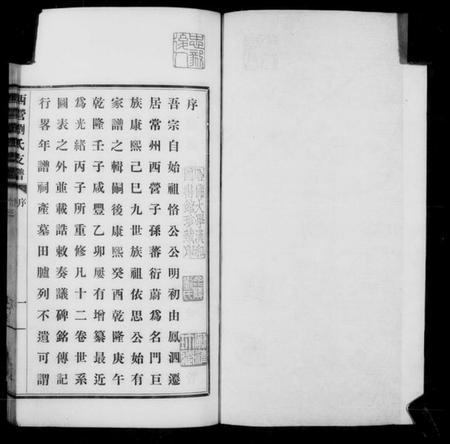 序
吾宗自始祖恪公公明初由鳳泗遷
居常州西營子孫蕃衍蔚為名門巨
族康熙己巳九世族祖依思公始有
家譜之輯嗣後康熙癸酉乾隆庚午
乾隆壬子咸豐乙卯屢有增纂最近
為光緒丙子所重修凡十二卷世系
圖表之外並載誥敕奏議碑銘傳記
行畧年譜祠產墓田臚列不遺可謂
西營劉氏支譜
序
一